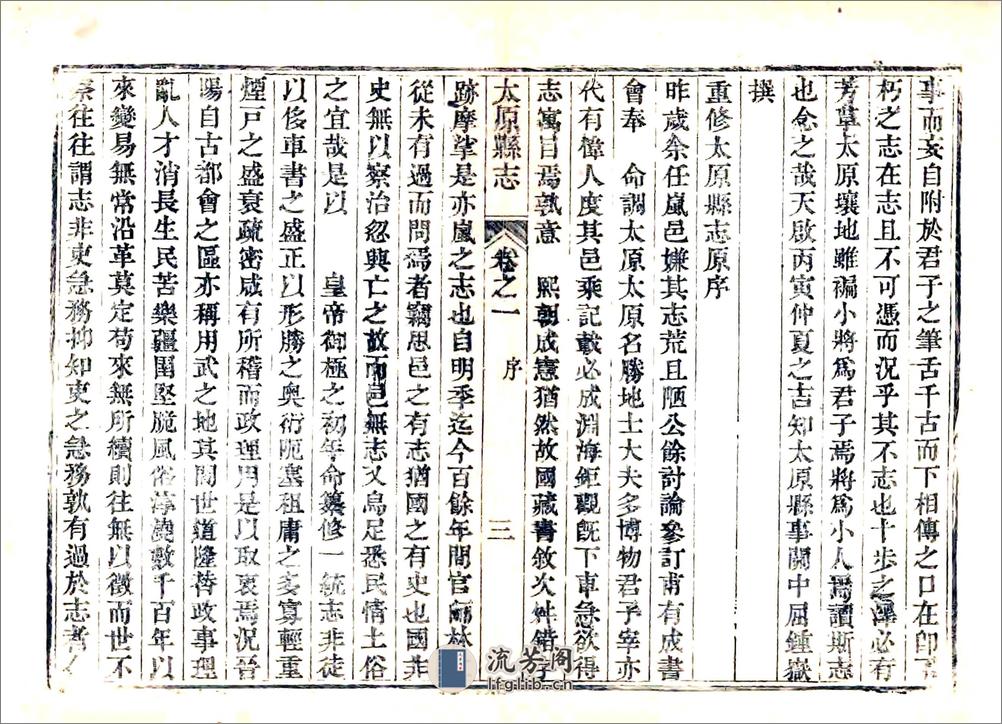 事而妄自附於君子之筆舌千古而下相傳之口在卽
朽之志在志且不可憑而況乎其不志也十步之澤必有
芳草太原壤地雖褊小將爲君子焉將爲小人焉讀斯志
也念之哉天啟丙寅仲夏之吉知太原縣事關中屈鍾嶽
撰
重修太原縣志原序
昨歲余任嵐邑嫌其志荒且陋公餘討論參訂甫有成書
會奉 命調太原太原名勝地士大夫多博物君子宰亦
代有偉人度其邑乘記載必成淵海鉅觀旣下車急欲得
志寓目焉孰意 熙朝成憲猶然故國藏書敘次舛錯字
太原縣志 卷之一 序 三
跡摩挲是亦嵐之志也自明季迄今百餘年間官
從未有過而問焉者竊思邑之有志猶國之有史也國非
史無以察治忽興亡之故而邑無志又烏足悉民情土俗
之宜哉是以 皇帝御極之初年命纂修一統志非徒
以侈車書之盛正以形勝之奧衍阨塞租庸之多寡輕重
煙戶之盛衰疏密咸有所稽而政理用是以取衷焉況晉
陽自古都會之區亦稱用武之地其間世道隆替政事理
亂人才消長生民苦樂疆圉堅脆風俗淳澆數千百年以
來變易無常沿革莫定苟來無所續則往無以徵而世不
察往往謂志非吏急務抑知吏之急務孰有過於志者
流芳閣
lfglib.cn